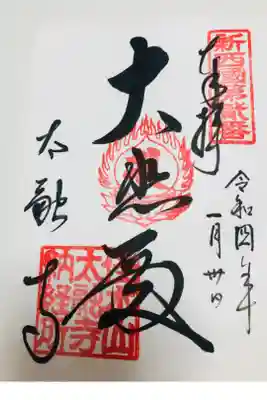 新西國第貳番
奉拝
令和四年
一月卅日
大悲殿
太融寺
佳木山
太融寺
納経印